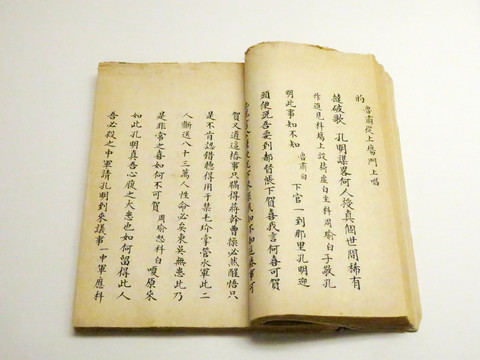 的 魯肅從上場門上唱
撻破歌 孔明謀畧何人授真個世間稀有
作進見科場上設椅虛白坐科周瑜白子敬孔
明此事知不知 魯肅白 下官一到那里孔明迎
頭便説吾要到都督帳下賀喜我言何喜可賀
賀又道這樁事只瞞得蔣幹曹操必然醒悟只
是不肯認錯聽得用于禁毛玠掌管水軍此二
人斷送八十三萬人性命必矣東吳無患此乃
是非常之喜如何不可賀 周瑜怒科白 嗄原來
如此孔明真吾心腹之大患也如何留得此人
吾必殺之中軍請孔明到來議事一中軍應科